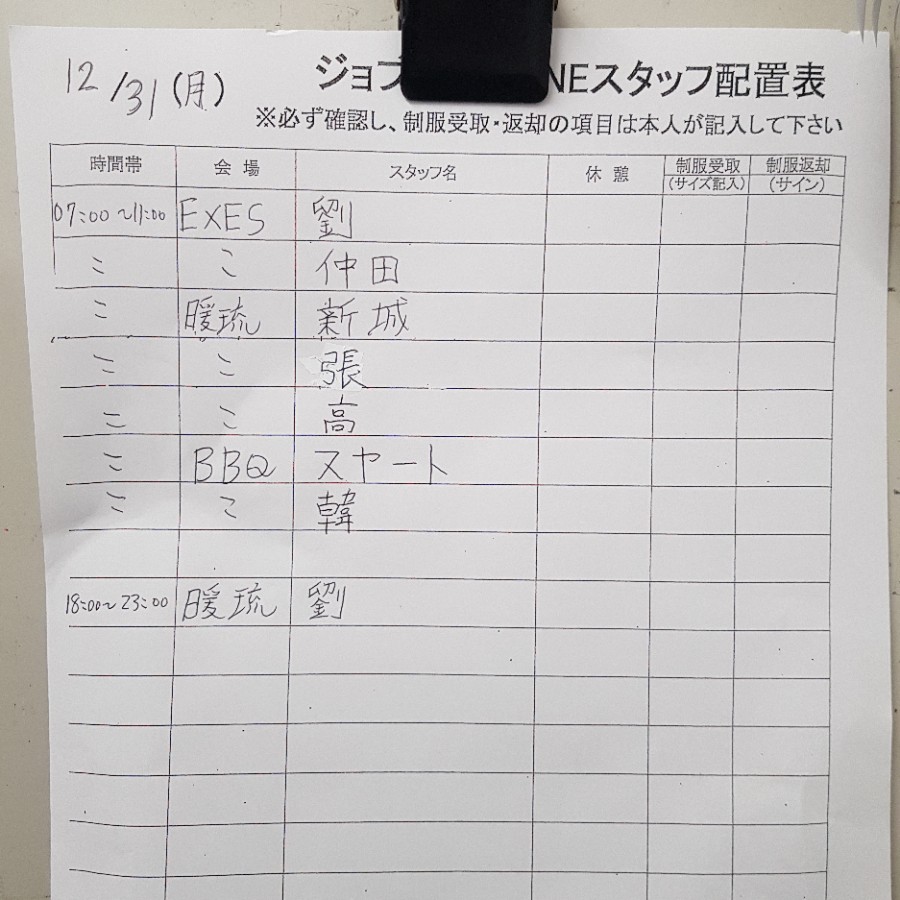 12/31(月)
ジョブ NEスタッフ配置表
※必ず確認し、制服受取・返却の項目は本人が記入して下さい
時間帯 会場 スタッフ名 休憩 制服受取(サイズ記入) 制服返却(サイン)
07:00~11:00 EXES 劉
〃 〃 仲田
〃 暖琉 新城
〃 〃 張
〃 〃 高
〃 BBQ スヤート
〃 〃 韓
18:00~23:00 暖琉 劉